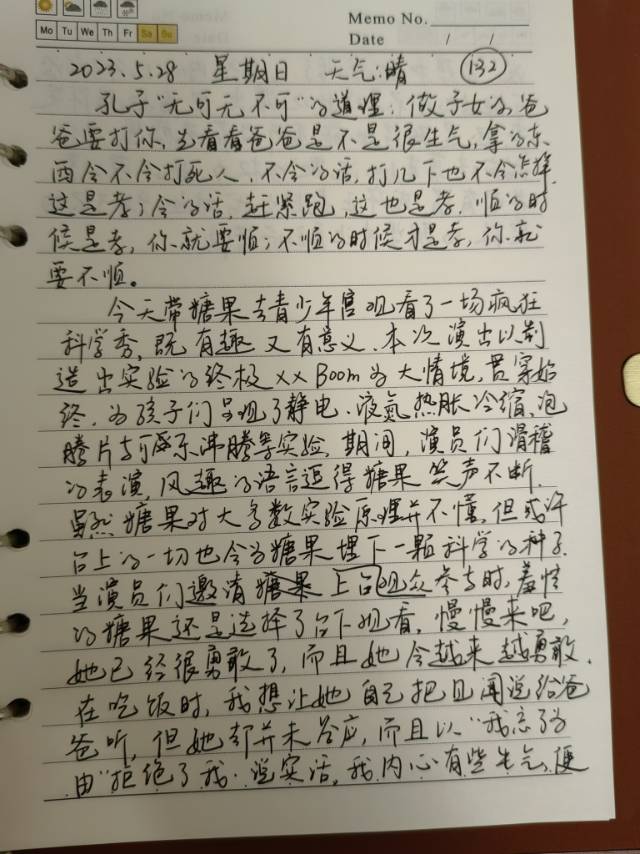 Memo No.
Mo Tu We Th Fr Sa Su
Date / /
2023.5.28 星期日 天气:晴 (132)
孔子"无可无不可"的道理:做子女的,爸
爸要打你,先看看爸爸是不是很生气,拿的东
西会不会打死人,不会的话,打几下也不会怎样,
这是孝;会的话,赶紧跑,这也是孝。顺的时
候是孝,你就要顺;不顺的时候才是孝,你就
要不顺。
今天带糖果去青少年宫观看了一场疯狂
科学秀,既有趣又有意义。本次演出以制
造出实验的终极xxBoom为大情境,贯穿始
终,为孩子们呈现了静电、液氮、热胀冷缩、泡
腾片与可乐沸腾等实验,期间,演员们滑稽
的表演,风趣的语言逗得糖果笑声不断。
虽然糖果对大多数实验原理并不懂,但或许
台上的一切也会为糖果埋下一颗科学的种子。
当演员们邀请上台观众参与时,羞怯
的糖果还是选择了台下观看,慢慢来吧,
她已经很勇敢了,而且她会越来越勇敢。
在吃饭时,我想让她自己把见闻说给爸
爸听,但她却并未答应,而且以"我忘了为
由"拒绝了我。说实话,我内心有些生气,便